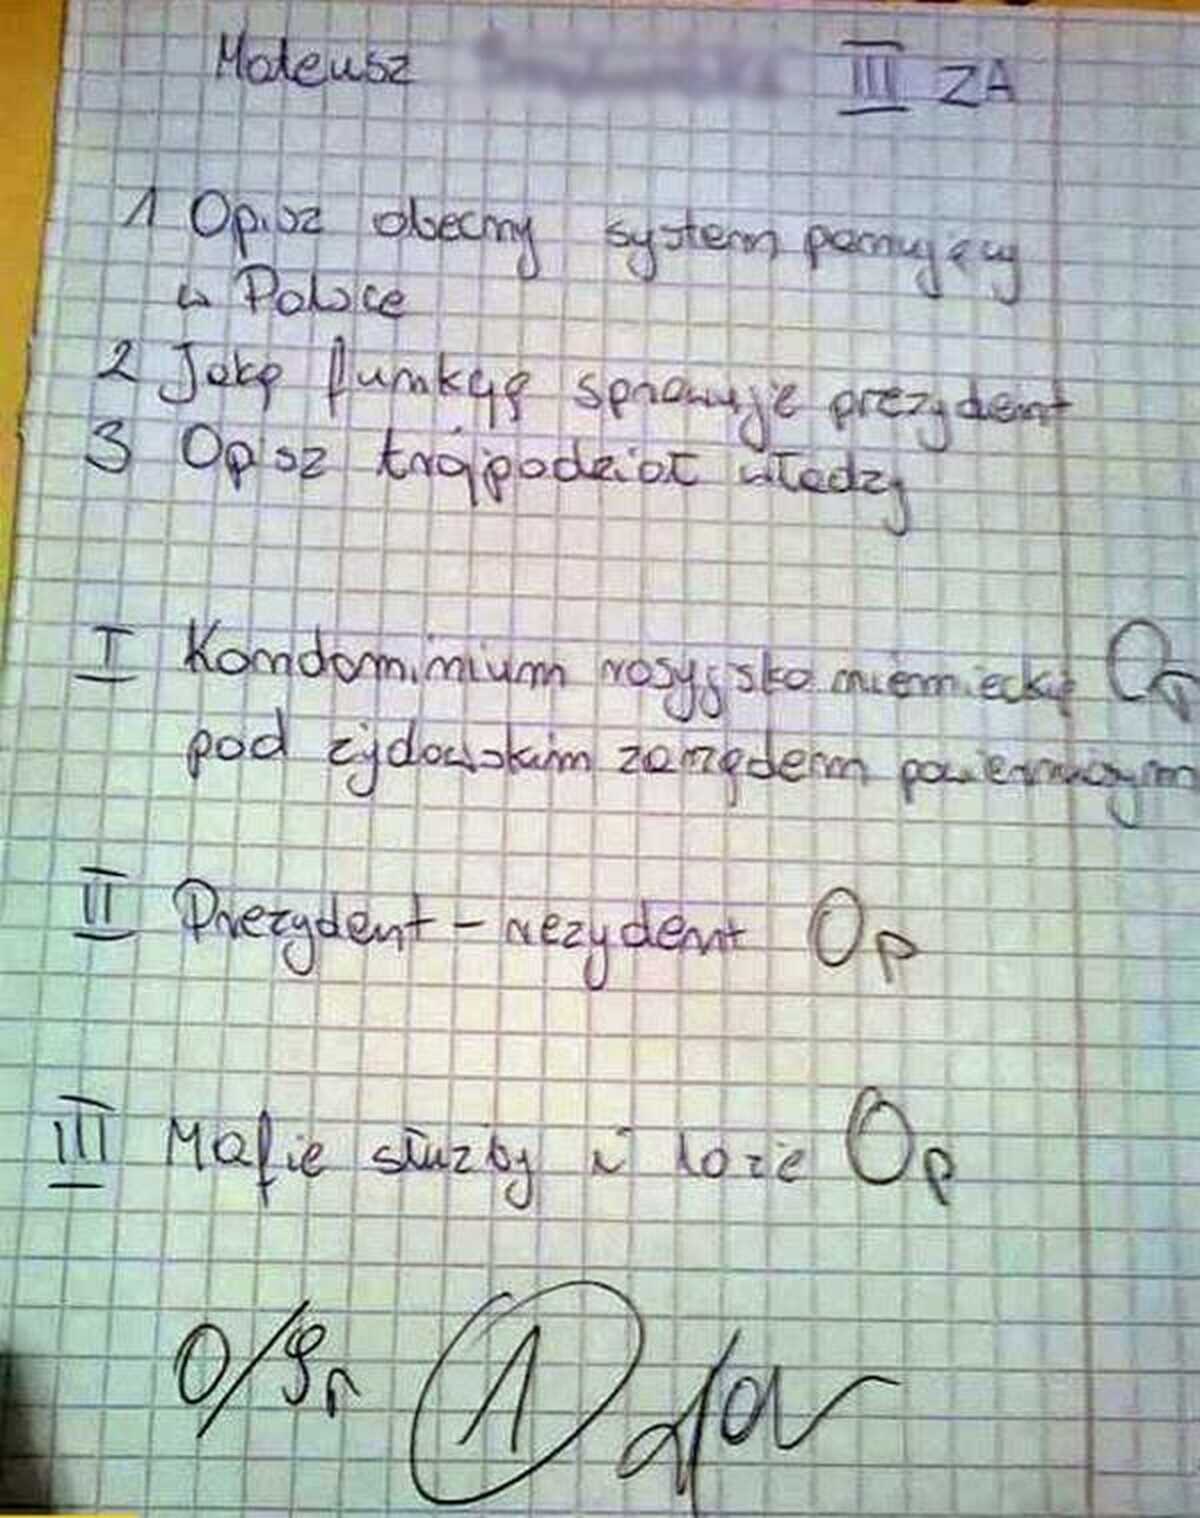 Mateusz III ZA
1 Opisz obecny system panujący
w Polsce
2 Jaką funkcję sprawuje prezydent
3 Opisz trójpodział władzy
I Kondominium rosyjsko niemieckie 0p
pod żydowskim zarządem powierniczym
II Prezydent - rezydent 0p
III Mafie służby i loże 0p
0/9p 1